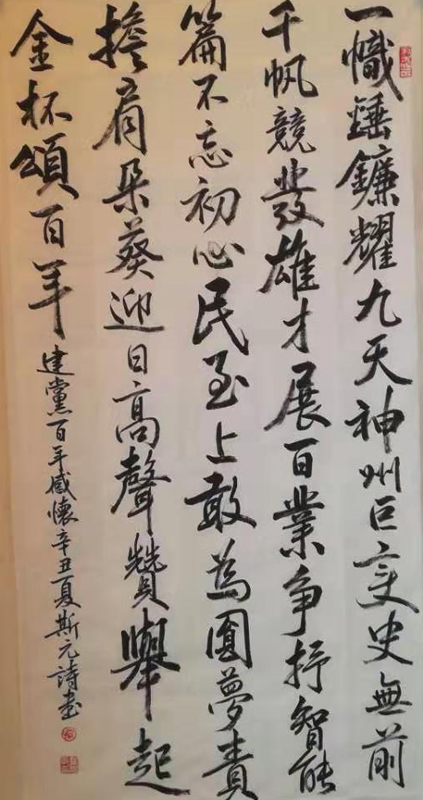 一幟錘鐮耀九天神州巨变史無前
千帆競發雄才展百業争抒智能
篇不忘初心民至上敢為圓夢責
擔肩朵葵迎日高聲贊舉起
金杯頌百年
建黨百年感懷辛丑夏斯元詩书